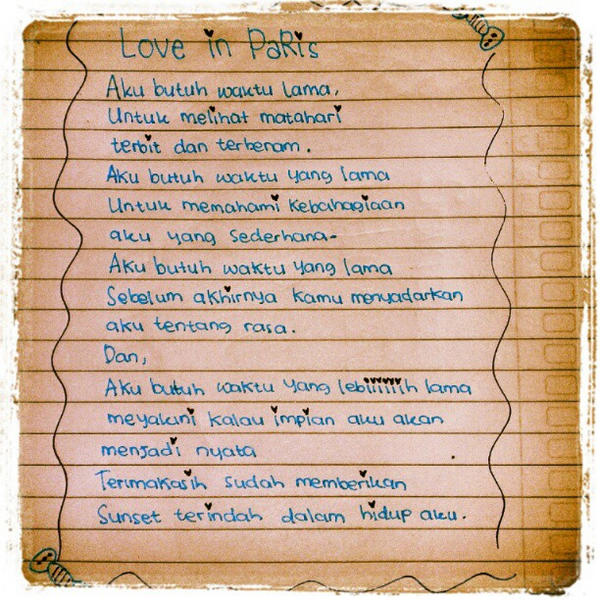 Love in Paris
Aku butuh waktu lama,
Untuk melihat matahari
terbit dan terbenam.
Aku butuh waktu yang lama
Untuk memahami kebahagiaan
aku yang sederhana-
Aku butuh waktu yang lama
Sebelum akhirnya kamu menyadarkan
aku tentang rasa.
Dan,
Aku butuh waktu yang lebiiiiiih lama
meyakini kalau impian aku akan
menjadi nyata
Terimakasih sudah memberikan
Sunset terindah dalam hidup aku.